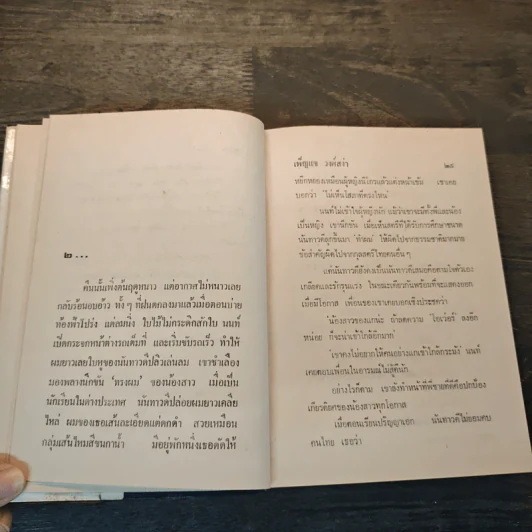 ๒...
คืนนั้นเพิ่งต้นฤดูหนาว แต่อากาศไม่หนาวเลย
กลับร้อนอบอ้าว ทั้งๆ ที่ฝนตกลงมาแล้วเมื่อตอนบ่าย
ท้องฟ้าโปร่ง แต่ลมนิ่ง ใบไม้ไม่กระดิกสักใบ นนท์
เปิดกระจกหน้าต่างรถเต็มที่ และเริ่มขับรถเร็ว ทำให้
ผมยาวเลยไบหูของนันทาวดีปลิวเล่นลม เขาชำเลือง
มองพลางนึกขัน 'ทรงผม' ของน้องสาว เมื่อเป็น
นักเรียนในต่างประเทศ นันทาวดีปล่อยผมยาวเคลีย
ไหล่ ผมของเธอเส้นละเอียดแต่ดกดำ สวยเหมือน
กลุ่มเส้นไหมสีขนกาน้ำ มีอยู่พักหนึ่งเธอดัดให้
เพ็ญแข วงศ์สง่า ๒๙
หยิกหยองเหมือนผู้หญิงนิโกรแล้วแต่งหน้าเข้ม เขาเคย
บอกว่า 'ไม่เห็นโสภาที่ตรงไหน'
นนท์ไม่เข้าใจผู้หญิงนัก แม้ว่าเขาจะมีทั้งพี่และน้อง
เป็นหญิง เขานึกขัน เมื่อเห็นสตรีที่ได้รับการศึกษาขนาด
นันทาวดีลุกขึ้นมา ทำผม ให้ผิดไปจากธรรมชาติมากมาย
ข้อสำคัญผิดไปจากกุลสตรีไทยคนอื่นๆ
แต่นันทาวดียังคงเป็นนันทาวดีที่เสมอคือตามใจตัวเอง
เกลียดและรักรุนแรง ในขณะเดียวกันพร้อมที่จะแสดงออก
เมื่อมีโอกาส เพื่อนของเขาเคยบอกเชิงประชดว่า
น้องสาวของแกน่ะ ถ้าลดความ โอเวอร์ ลงอีก
หน่อย ก็จะน่าเข้าใกล้อีกมาก
'เขาคงไม่อยากให้คนอย่างแกเข้าใกล้กระมัง' นนท์
เคยตอบเพื่อนในอารมณ์ไม่สู้ดีนัก
อย่างไรก็ตาม เขายังทำหน้าที่พี่ชายที่ดีคือปกป้อง
เกียรติยศของน้องสาวทุกโอกาส
เมื่อตอนเรียนปริญญาเอก นันทาวดีไม่ชอบคบ
คนไทย เธอว่า